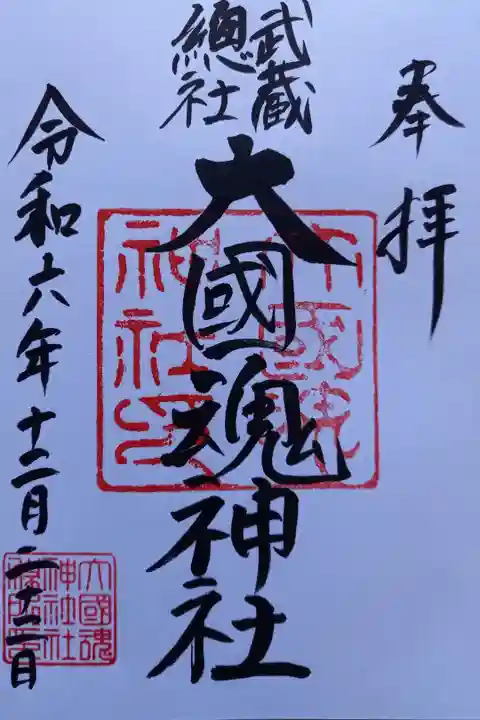 奉拝
武蔵
總社
大國魂神社
大國魂
神社印
令和六年十二月二十二日
大國魂
神社社